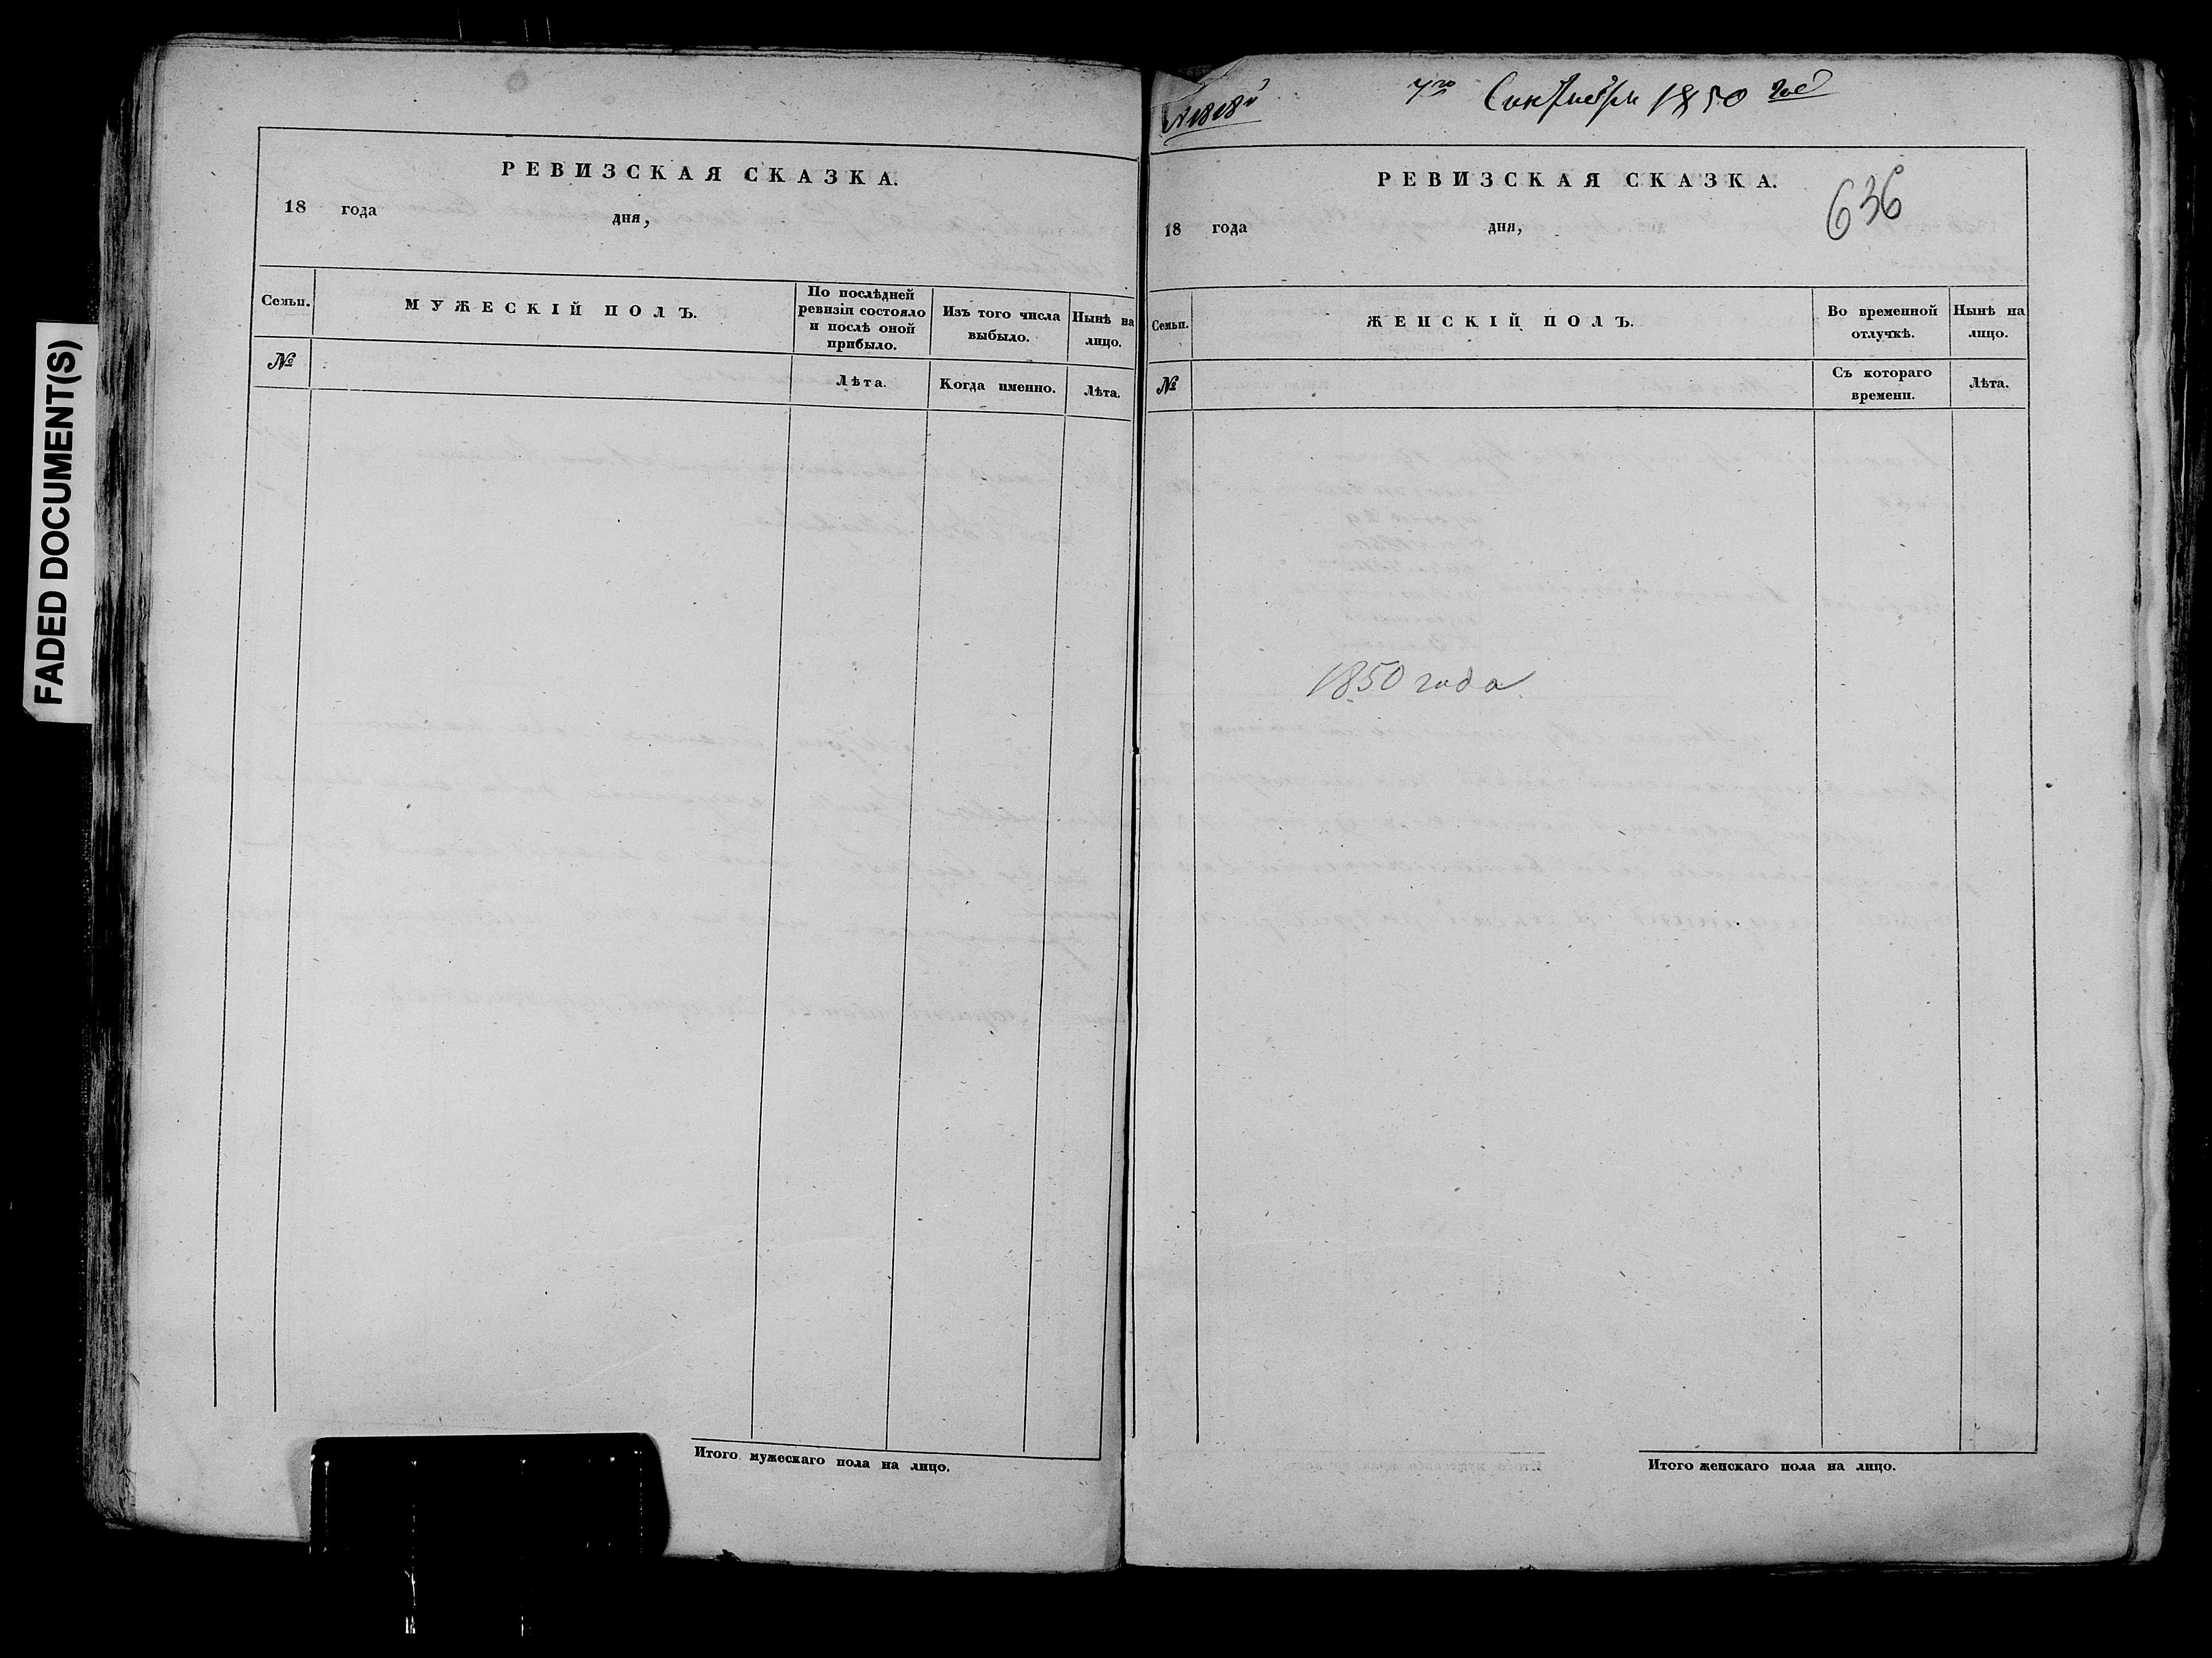 FADED DOCUMENT(S)
РЕВИЗСКАЯ СКАЗКА.
18 года дня,
Семьи.
МУЖЕСКІЙ ПОЛЪ.
По послѣдней
ревизіи состояло
и послѣ оной
прибыло.
Изъ того числа
выбыло.
Нынѣ на
лицо.
№
Лѣта.
Когда именно.
Лѣта.
Итого мужескаго пола на лицо.
7го Сентября 1850 год
РЕВИЗСКАЯ СКАЗКА.
636
18 года дня,
Семьи.
ЖЕНСКІЙ ПОЛЪ.
Во временной
отлучкѣ.
Нынѣ на
лицо.
№
Съ котораго
времени.
Лѣта.
1850 года
Итого женскаго пола на лицо.